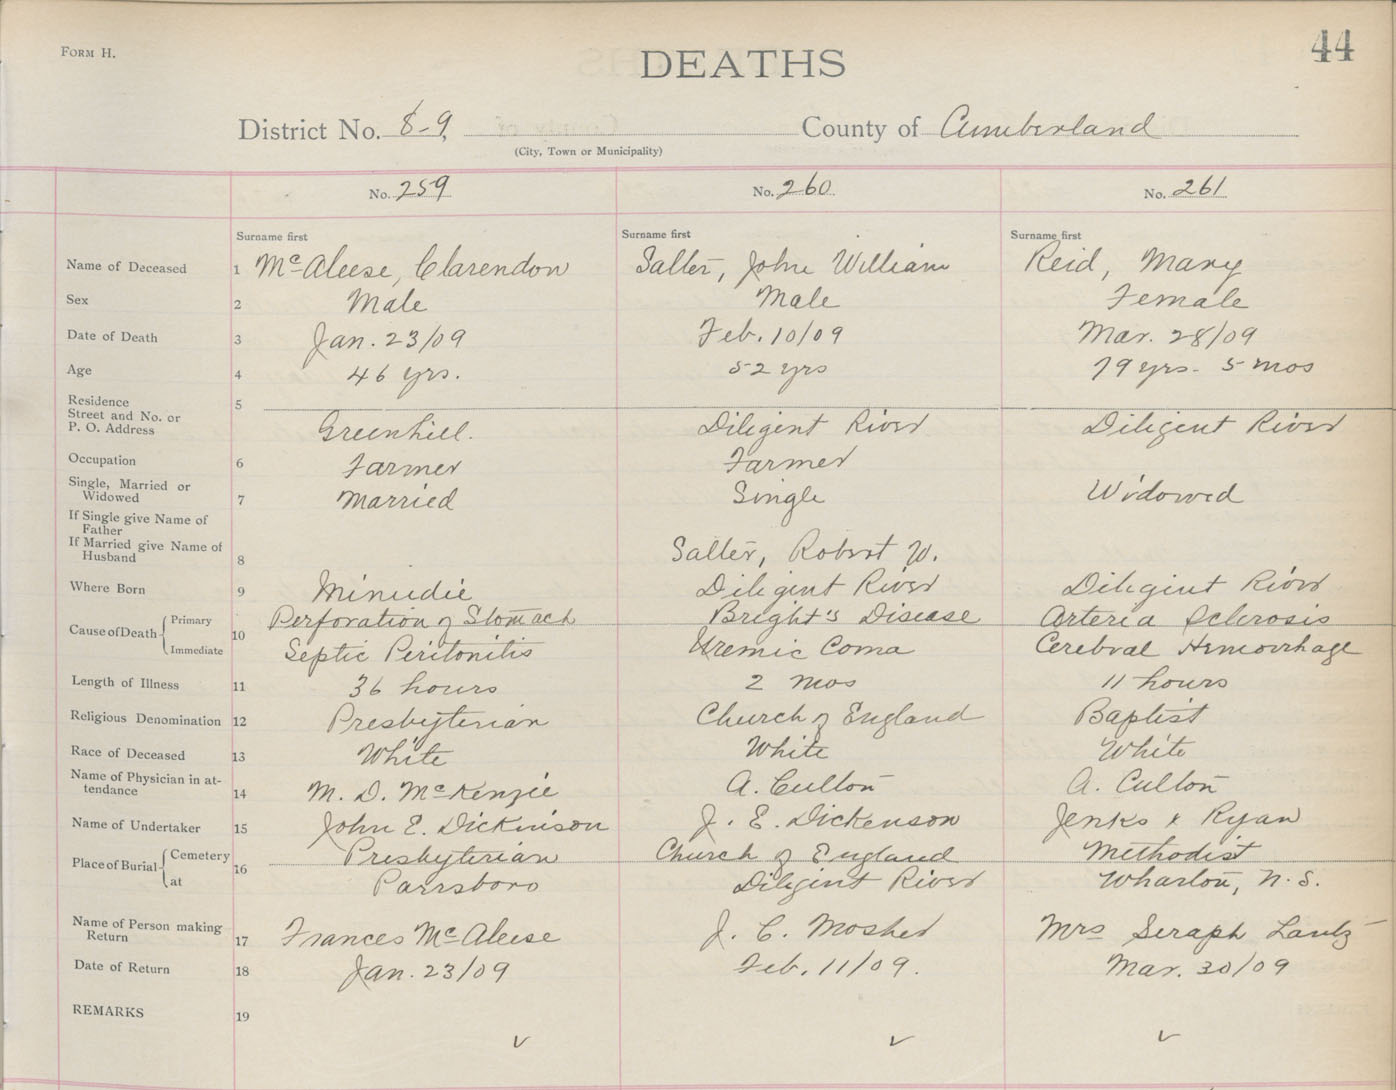 FORM H.
DEATHS
44
District No. 8-9,
County of Cumberland
(City, Town or Municipality)
No. 259 No. 260 No. 261
Surname first Surname first Surname first
Name of Deceased 1 McAleese, Clarendon Salter, John William Reid, Mary
Sex 2 Male Male Female
Date of Death 3 Jan. 23/09 Feb. 10/09 Mar. 28/09
Age 4 46 yrs. 52 yrs 79 yrs- 5 mos
Residence 5
Street and No. or
P. O. Address Greenhill. Diligent River Diligent River
Occupation 6 Farmer Farmer
Single, Married or
Widowed 7 Married Single Widowed
If Single give Name of
Father
If Married give Name of
Husband 8 Salter, Robert W.
Where Born 9 Minudie Diligent River Diligent River
Cause of Death Primary 10 Perforation of Stomach Bright's Disease Arteria Sclerosis
Immediate Septic Peritonitis Uremic Coma Cerebral Hemorrhage
Length of Illness 11 36 hours 2 mos 11 hours
Religious Denomination 12 Presbyterian Church of England Baptist
Race of Deceased 13 White White White
Name of Physician in at-
tendance 14 M. D. McKenzie A. Culton A. Culton
Name of Undertaker 15 John E. Dickinson J. E. Dickenson Jenks & Ryan
Place of Burial Cemetery 16 Presbyterian Church of England Methodist
at Parrsboro Diligent River Wharton, N.S.
Name of Person making
Return 17 Frances McAleese J. C. Mosher Mrs Seraph Lantz
Date of Return 18 Jan. 23/09 Feb. 11/09. Mar. 30/09
REMARKS 19
✓ ✓ ✓